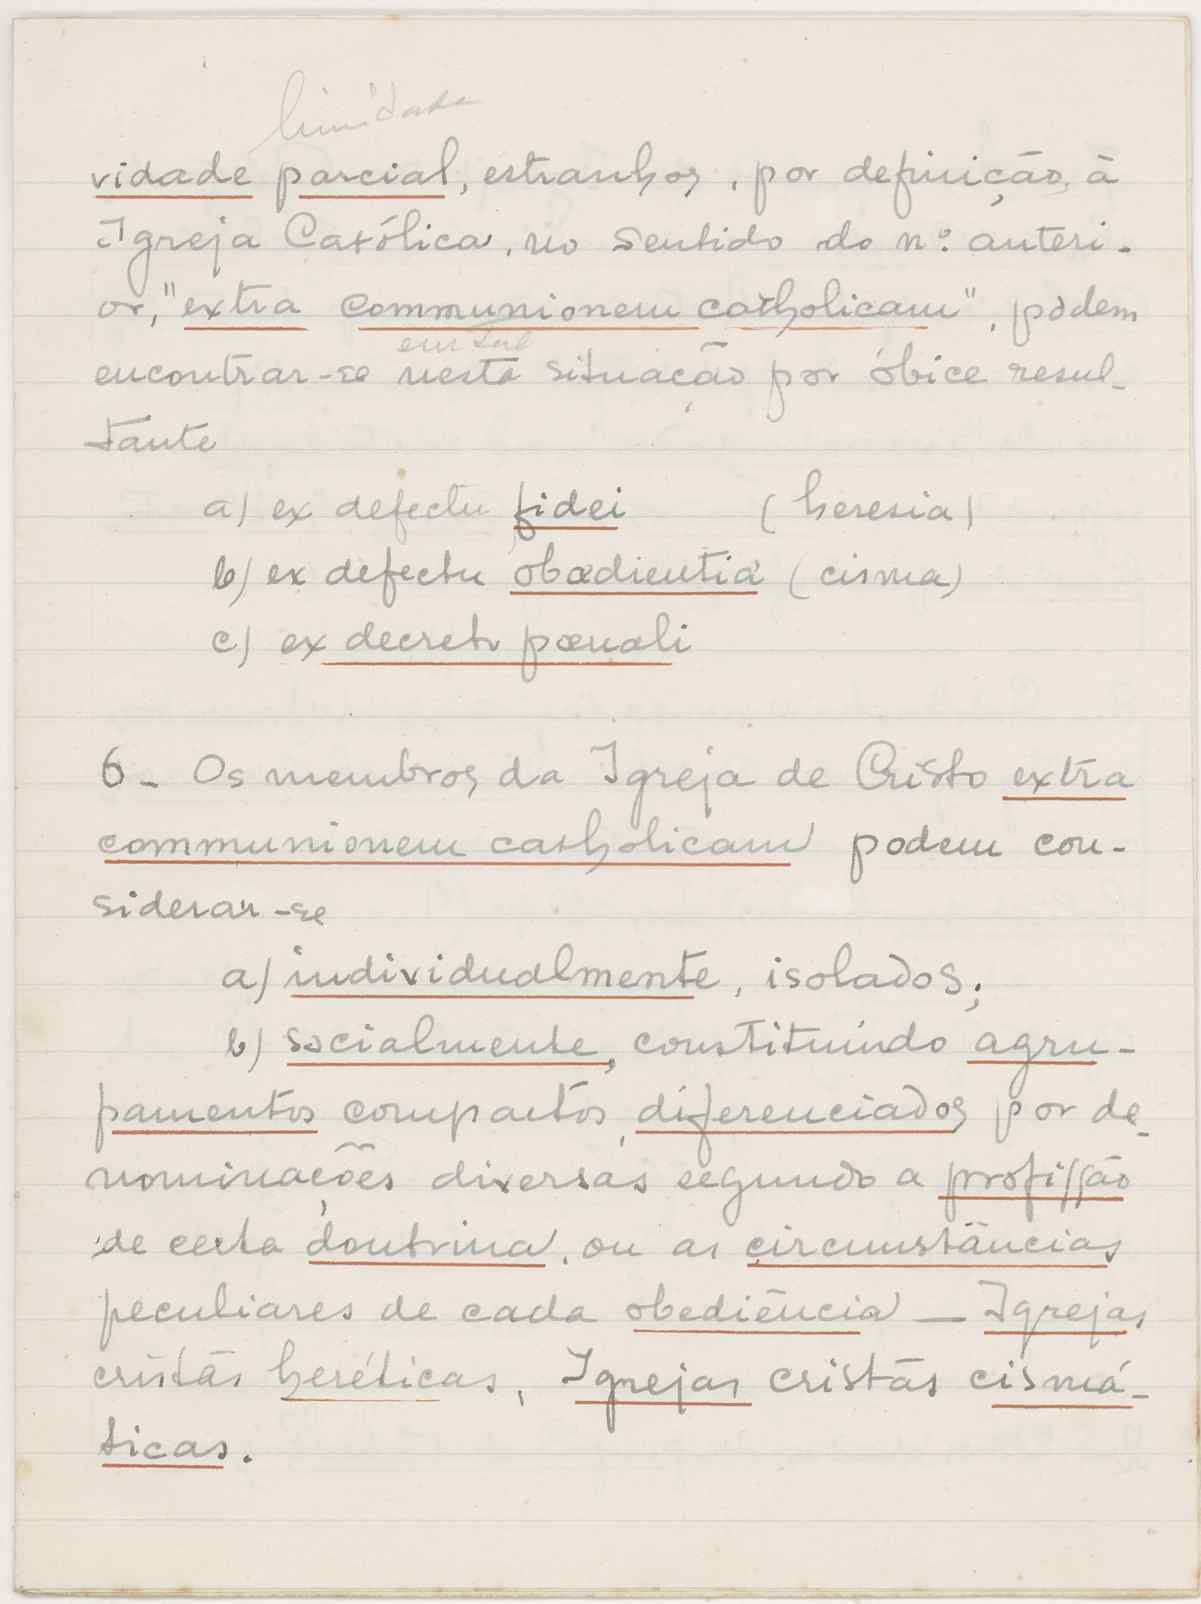 limitada
vidade parcial, estranhos, por definição, à
Igreja Católica, no sentido do nº anteri-
or, "extra communionem catholicam", podem
em tal
encontrar-se nesta situação por óbice resul-
tante
a) ex defectu fidei (heresia)
b) ex defectu obœdientiæ (cisma)
c) ex decreto pœnali
6- Os membros da Igreja de Cristo extra
communionem catholicam podem con-
siderar-se
a) individualmente, isolados;
b) socialmente, constituindo agru-
pamentos compactos, diferenciados por de-
nominações diversas segundo a profissão
de certa doutrina, ou as circunstâncias
peculiares de cada obediência — Igrejas
cristãs heréticas, Igrejas cristãs cismá-
ticas.